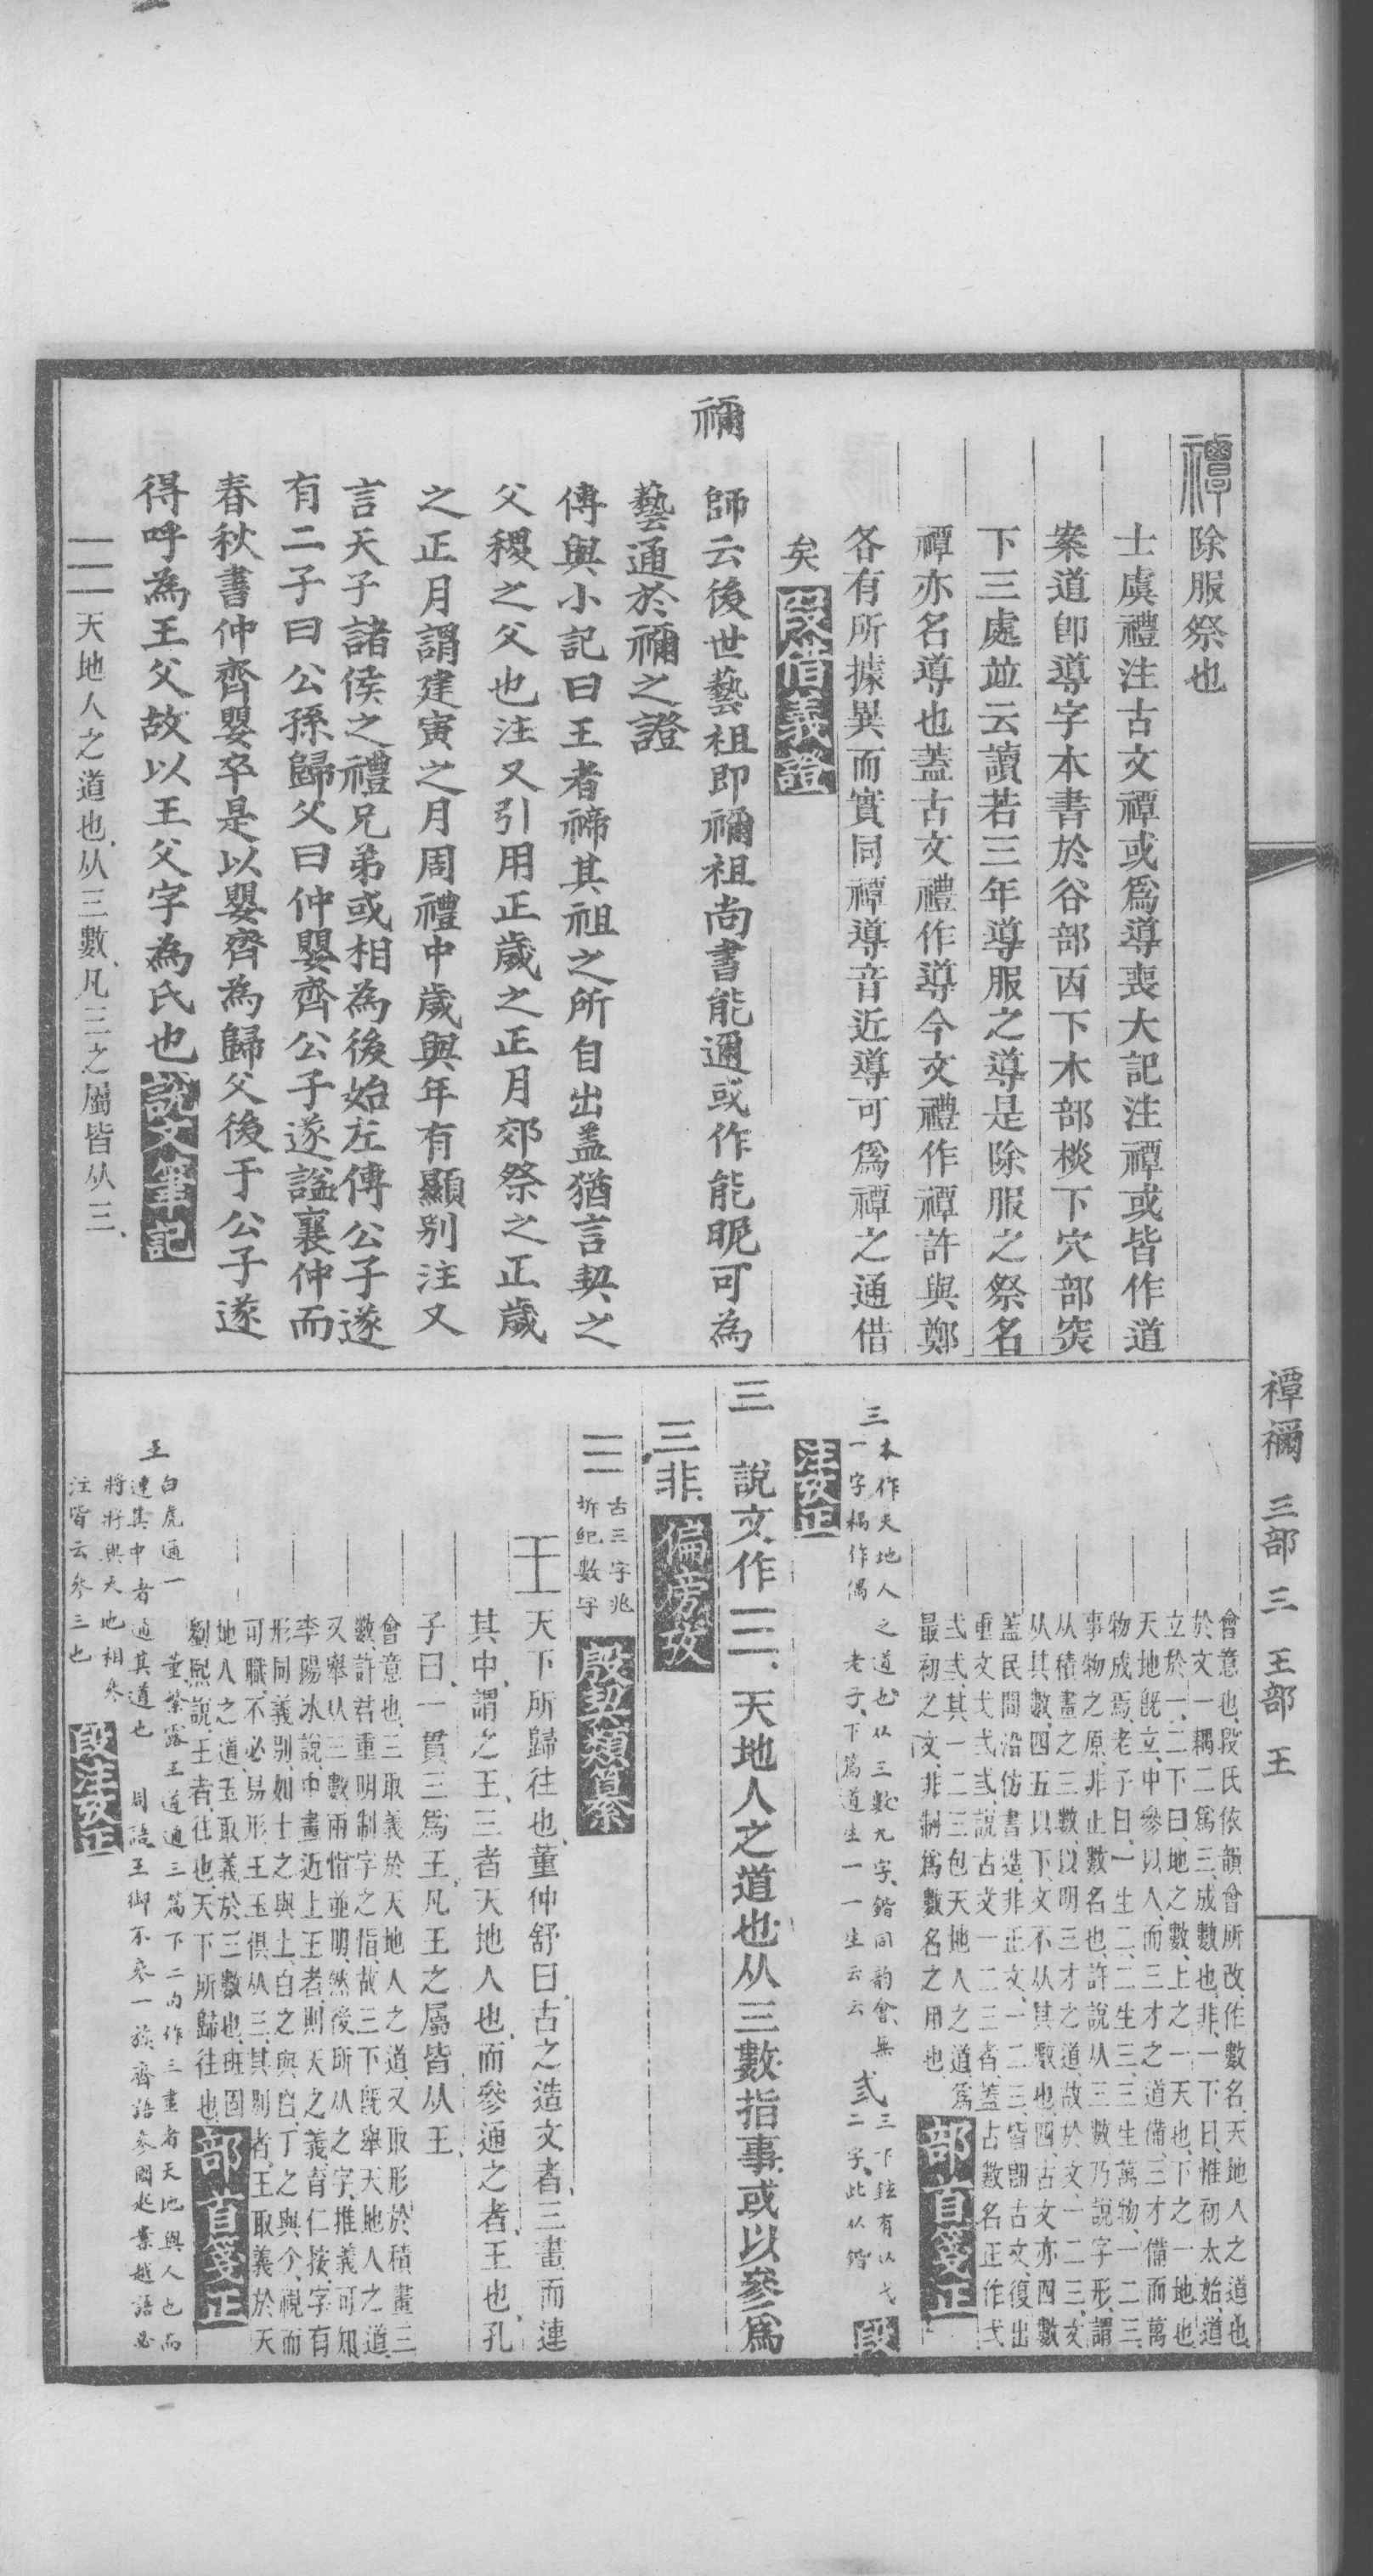 禫除服祭也
士虞禮注古文禫或爲導喪大記注禫或皆作道
案道卽導字本書於谷部㐁下木部棪下穴部突
下三處竝云讀若三年導服之導是除服之祭名
禫亦名導也蓋古文禮作導今文禮作禫許與鄭
各有所據異而實同禫導音近導可爲禫之通借
矣 段借義證
禰 師云後世藝祖即禰祖尚書能邇或作能昵可為
藝通於禰之證
傳與小記曰王者禘其祖之所自出盖猶言契之
父稷之父也注又引用正歲之正月郊祭之正歲
之正月謂建寅之月周禮中歲與年有顯别注又
言天子諸侯之禮兄弟或相為後始左傳公子遂
有二子曰公孫歸父曰仲嬰齊公子遂諡襄仲而
春秋書仲齊嬰卒是以嬰齊為歸父後于公子遂
得呼為王父故以王父字為氏也 說文筆記
三天地人之道也、从三數、凡三之屬皆从三、
會意也、段氏依韻會所改、作數名、天地人之道也、
於文一耦二爲三、成數也、非、一下曰、惟初太始、道
立於一、二下曰、地之數、上之一天也、下之一地也、
天地旣立、中參以人、而三才之道備、三才備而萬
物成焉、老子曰、一生二、二生三、三生萬物、一二三
事物之原、非止數名也、許說从三數、乃說字形、謂
从積畫之三數、以明三才之道、故於文一二三、文
从其數、四五以下、文不从其數也、四、古文亦四數
蓋民間沿仿書造、非正文、一二三、皆卽古文、復出
重文弌弍弎、說古文一二三者、蓋古數名正作弌
弍弎、其一二三包天地人之道、爲
最初之文、非制爲數名之用也、 部首箋正
三 本作天地人之道也从三數九字、鍇同韵會、無
一字耦作偶 老子、下篇道生一一生云云
弎 三下鉉有从弋
二字、此从鍇 段
注攷正
三 說文作三、天地人之道也从三數指事、或以參爲
三非、 偏旁攷
三 古三字兆
坼紀數字 殷契類纂
王天下所歸往也、董仲舒曰、古之造文者、三畫而連
其中、謂之王、三者天地人也、而參通之者、王也、孔
子曰、一貫三爲王、凡王之屬皆从王、
會意也、三取義於天地人之道、又取形於積畫三
數、許君重明制字之恉、故三下旣舉天地人之道、
又舉从三數、兩恉並明、然後所从之字、推義可知、
李陽冰說、中畫近上、王者、則天之義、育仁按、字有
形同義別、如士之與土、白之與自、丁之與个、視而
可職、不必易形、王玉俱从三、其別者、王取義於天
地人之道、玉取義於三數也、班固
劉熙說、王者、往也、天下所歸往也、 部首箋正
王 白虎通一 董繁露王道通三篇下二句作三畫者天地與人也而
連其中者通其道也 周語王御不參一族齊語參國起案越語必
將將與天地相參
注皆云參三也 段注攷正
禫禰 三部 三 王部 王